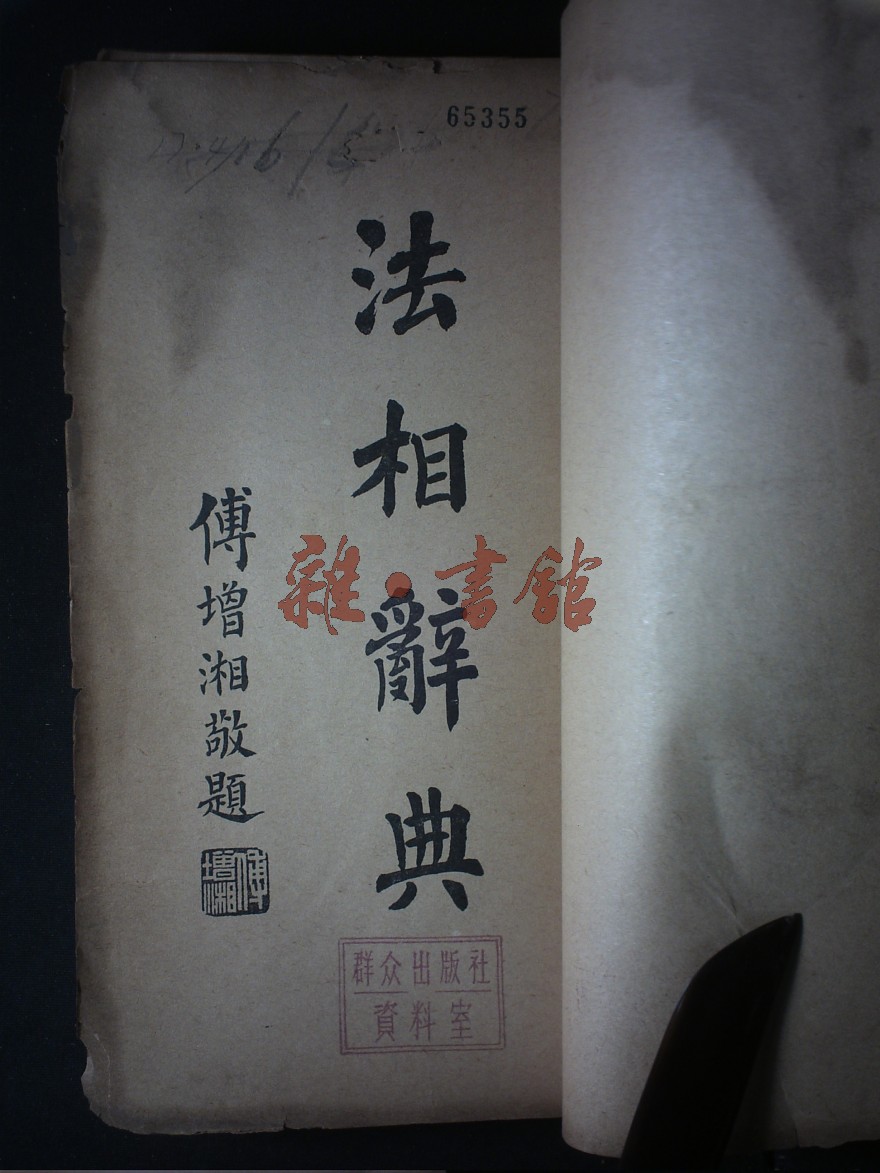 65355
法相辭典
傅增湘敬題
傅增湘
雜·書館
群众出版社
資料室